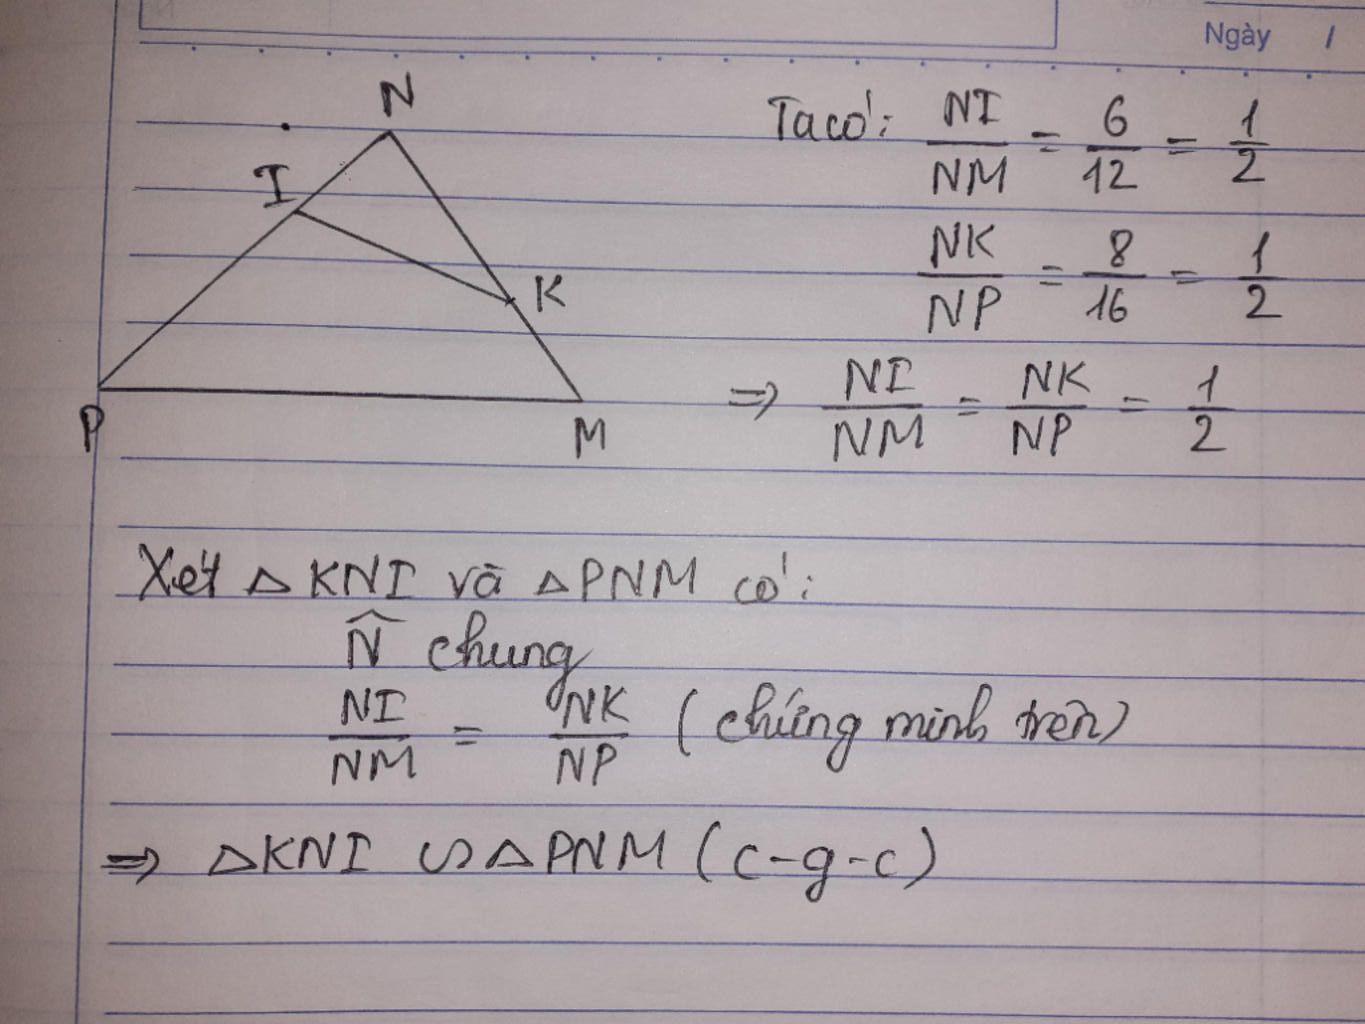 Ngày /
N
I
K
P
M
Ta có: NI/NM = 6/12 = 1/2
NK/NP = 8/16 = 1/2
=> NI/NM = NK/NP = 1/2
Xét △KNI và △PNM có:
N̂ chung
NI/NM = NK/NP (chứng minh trên)
=> △KNI ∽ △PNM (c-g-c)